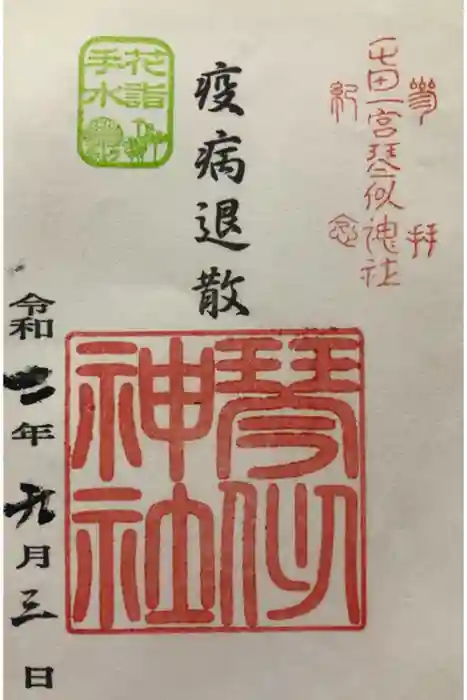 参拝
屯田一宮琴似神社
紀念
疫病退散
琴似
神社
花詣
手水
令和二年九月三日